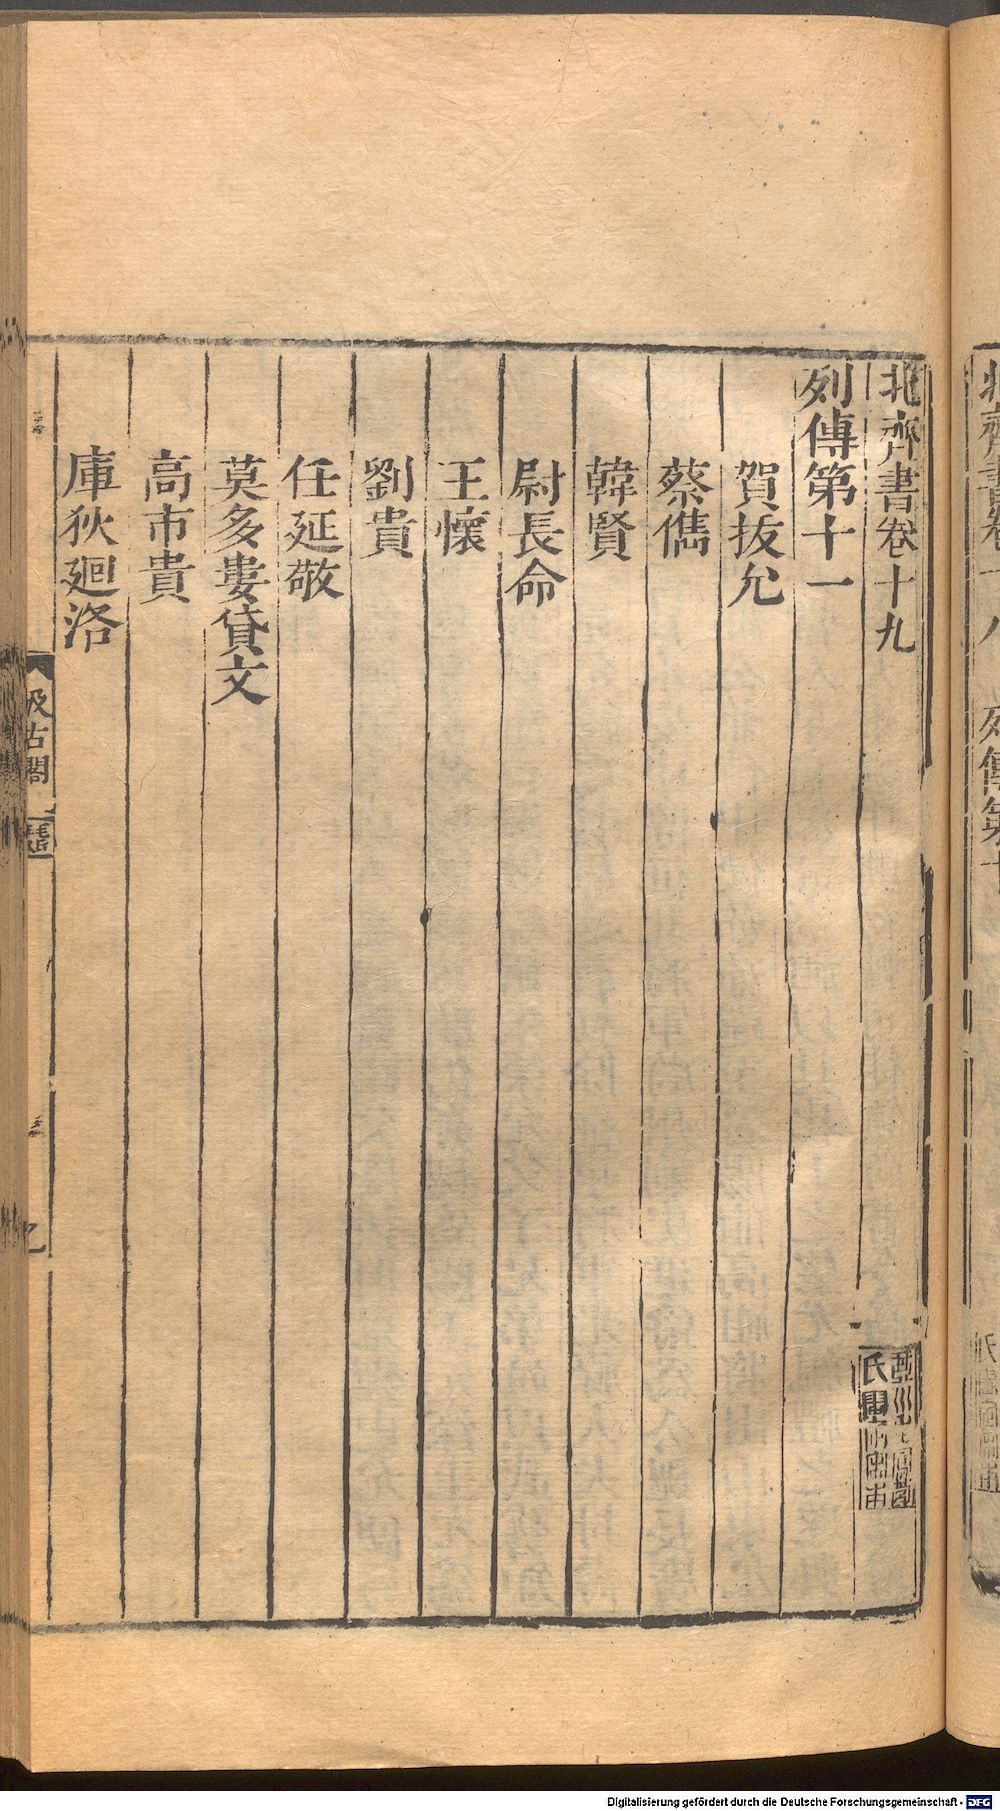 北齊書卷十九
列傳第十一
賀拔允
蔡儁
韓賢
尉長命
王懷
劉貴
任延敬
莫多婁貸文
高市貴
庫狄迴洛
汲古閣
毛氏
Digitalisierung gefördert durch die Deutsche Forschungsgemeinschaft - DFG